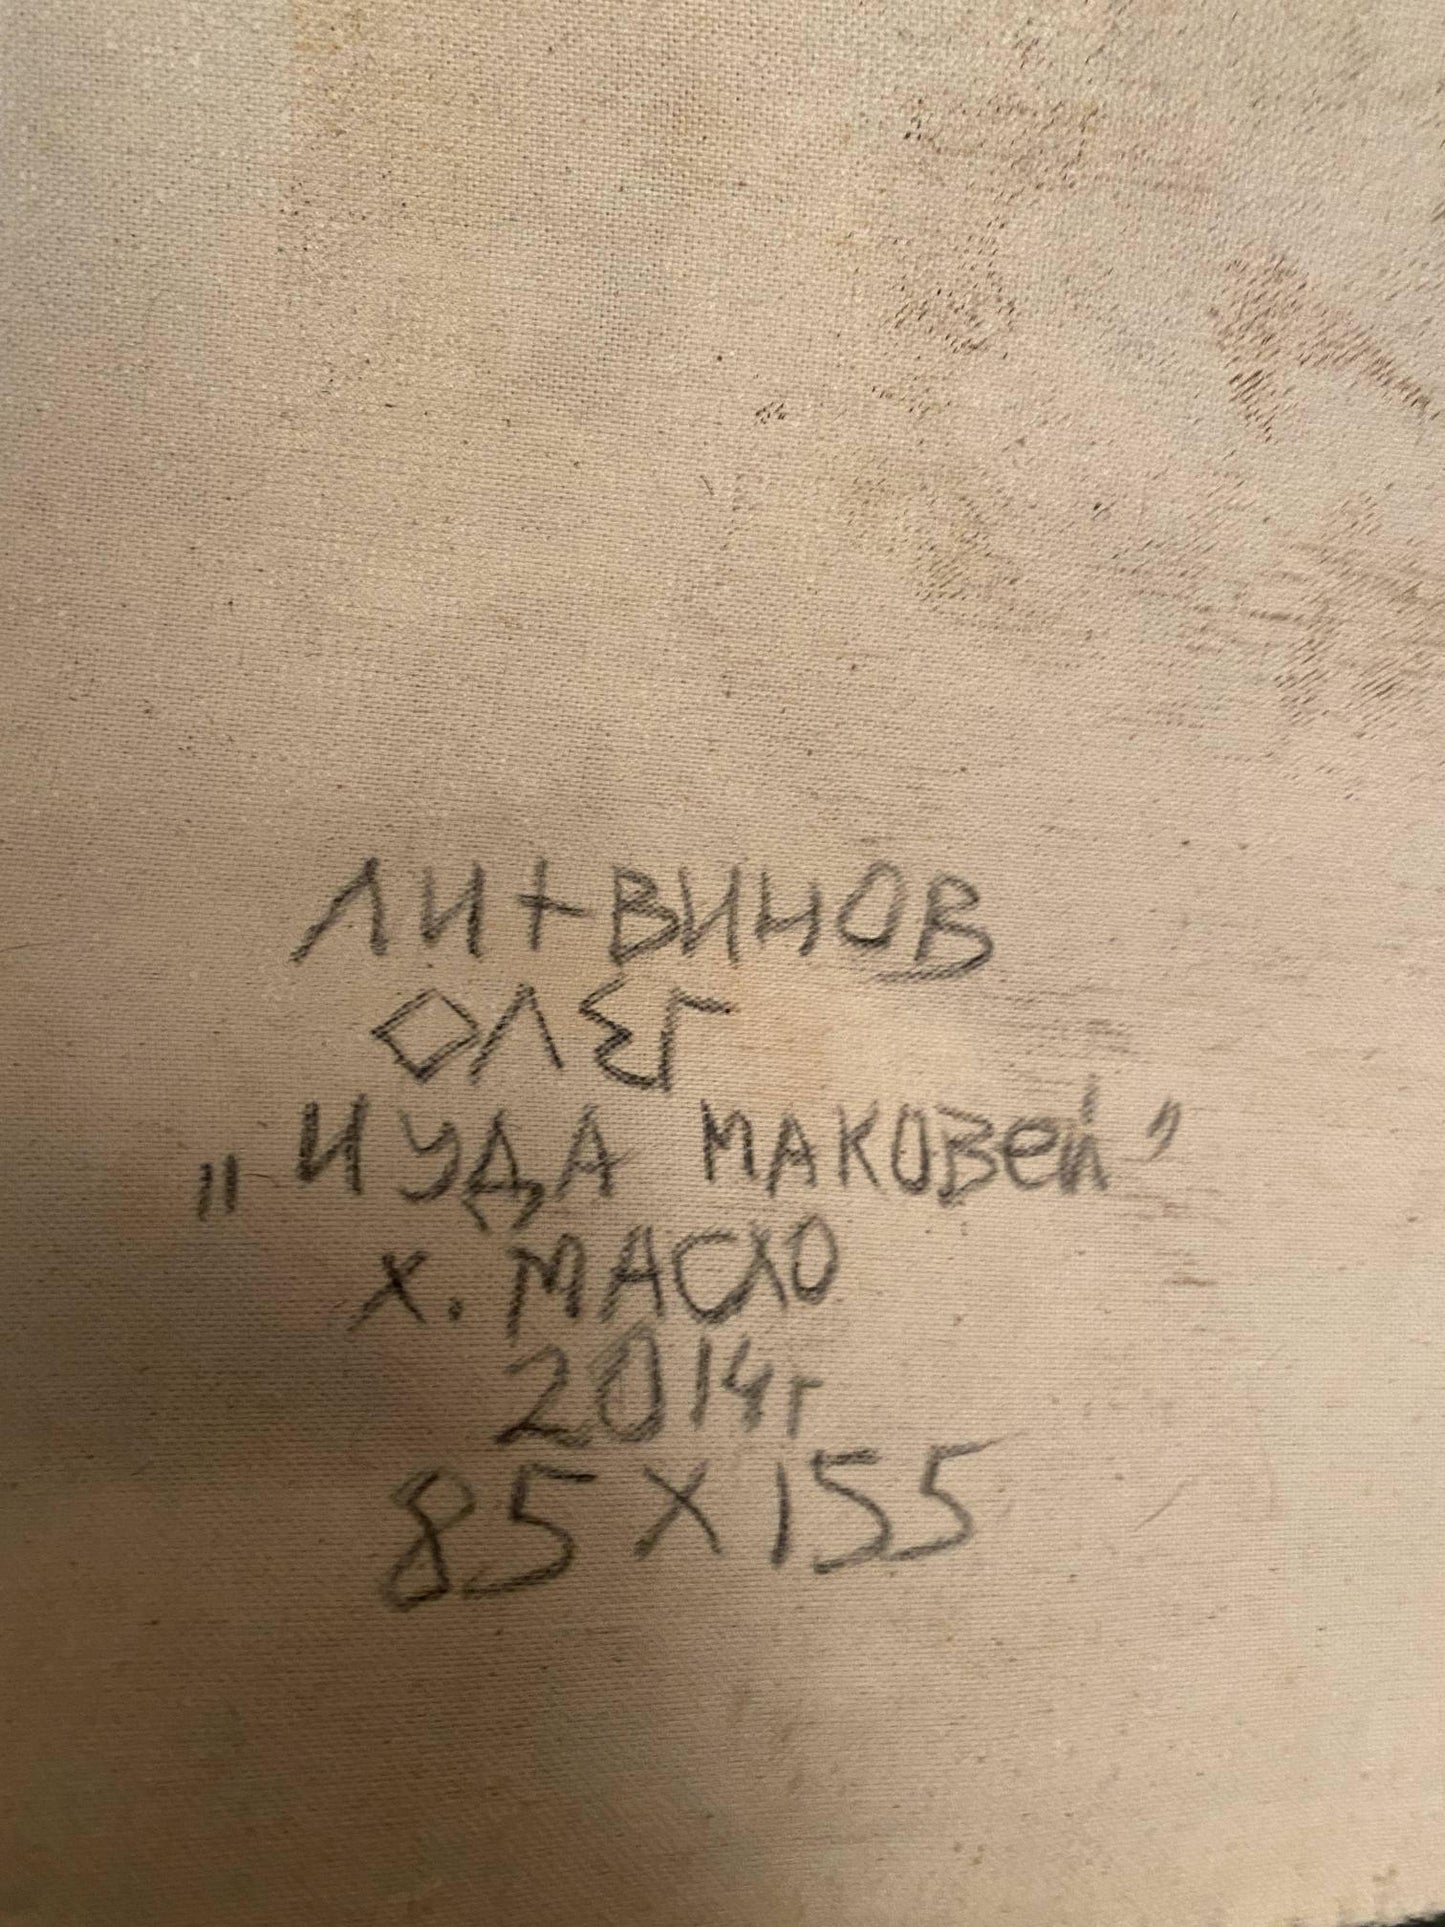 ЛИТВИНОВ
ОЛЕГ
„ИУДА МАКОВЕЙ”
Х. МАСЛО
2014г
85 х 155